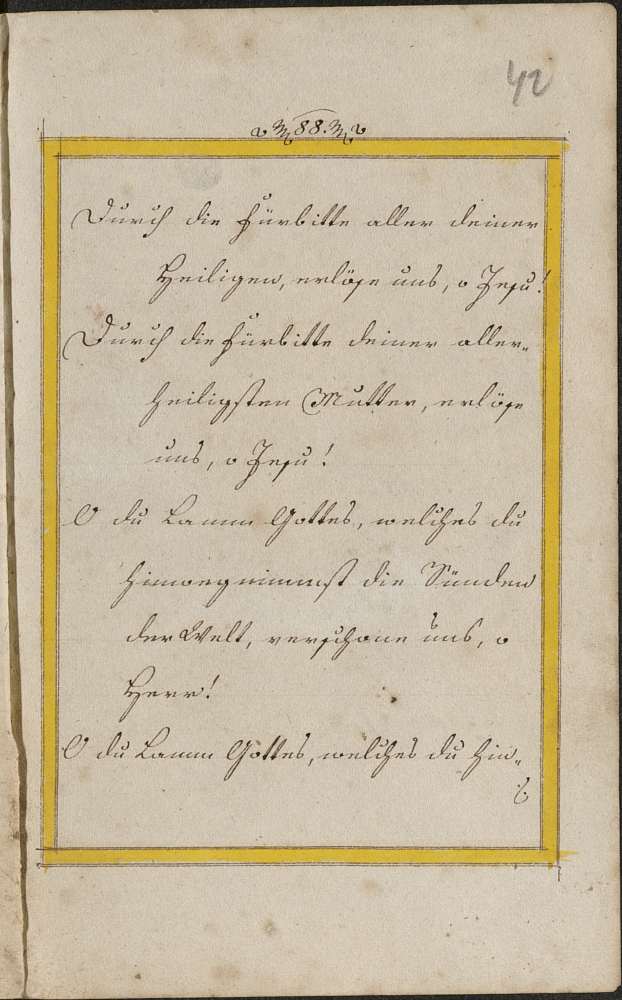 42
88.
Durch die Fürbitte aller deiner
Heiligen, erlöse uns, o Jesu!
Durch die Fürbitte deiner aller-
heiligsten Mutter, erlöse
uns, o Jesu!
O du Lamm Gottes, welches du
hinwegnimmst die Sünden
der Welt, verschone uns, o
Herr!
O du Lamm Gottes, welches du hin-